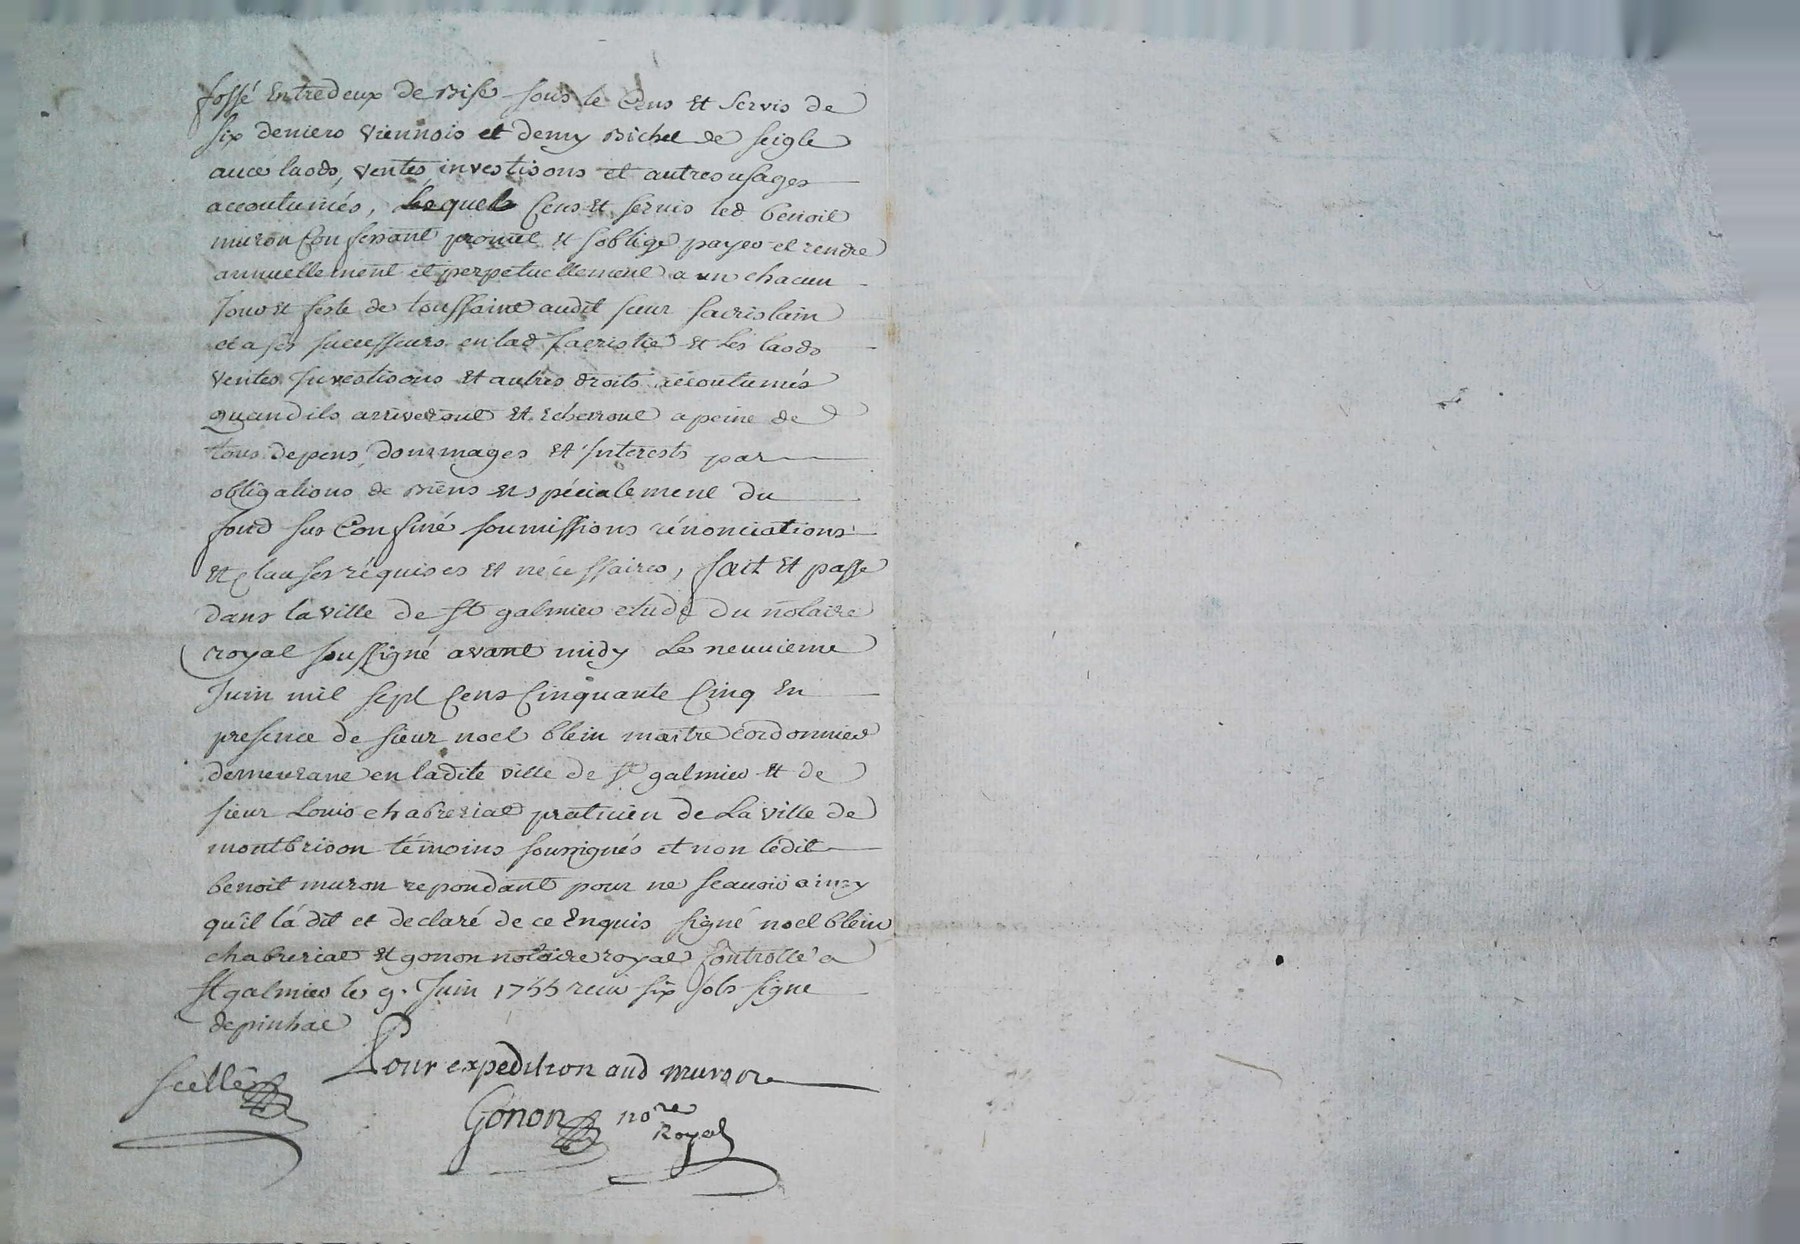 fossé Entredeux de Bise sous le Cens et servis de
six deniers viennois et demy Bichet de seigle
avec laods, ventes, investisons et autres usages
accoutumés, Lesquels Cens et servis led benoit
muron Confessant promet et soblige payer et rendre
annuellement et perpetuellement a un chacun
jour et feste de toussaint audit sieur sacristain
et a ses successeurs en lad sacristie et les laods
ventes Investisons et autres droits accoutumés
quand ils arriveront et echerront a peine de
tous depens, dommages et Interests par
obligations de Biens et spécialement du
fond sus Confiné soumissions rénonciations
et clauses réquises et nécessaires, fait et passé
dans la ville de St galmier etude du notaire
royal soussigné avant midy Le neuvieme
Juin mil sept Cens Cinquante Cinq En
presence de sieur noel blein maitre cordonnier
demeurant en ladite ville de St galmier et de
sieur Louis chabreriat praticien de La ville de
montbrison témoins soussignés et non ledit
benoit muron repondant pour ne scavoir ainsy
qu'il la dit et declaré de ce Enquis signé noel blein
chabreriat et gonon notaire royal Controllé a
St galmier le 9. Juin 1755 reçu six sols signé
depinhac
Pour expedition aud muron
Scellé
Gonon nore
Royal